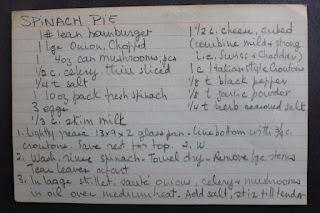 SPINACH PIE
1# lean hamburger
1 lge Onion, Chopped
1 4oz can mushrooms, pcs
1/2 c. celery, thin sliced
1/4 t salt
10oz pack fresh spinach
3 eggs
1 1/3 c. skim milk
1 1/2 c. cheese, cubed
(combine mild & strong
i.e., Swiss & Cheddar)
1 c Italian style Croutons
1/8 t black pepper
1/8 t garlic powder
1/4 t herb seasoned salt
1. Lightly grease 13x9x2 glass pan. Line bottom with 3/4 c.
croutons. Save rest for top.
2. Wash, rinse spinach. Towel dry. Remove lge stems
Tear leaves apart
3. In large skillet, sauté onions, celery & mushrooms
in oil over medium heat. Add salt, stir till tender